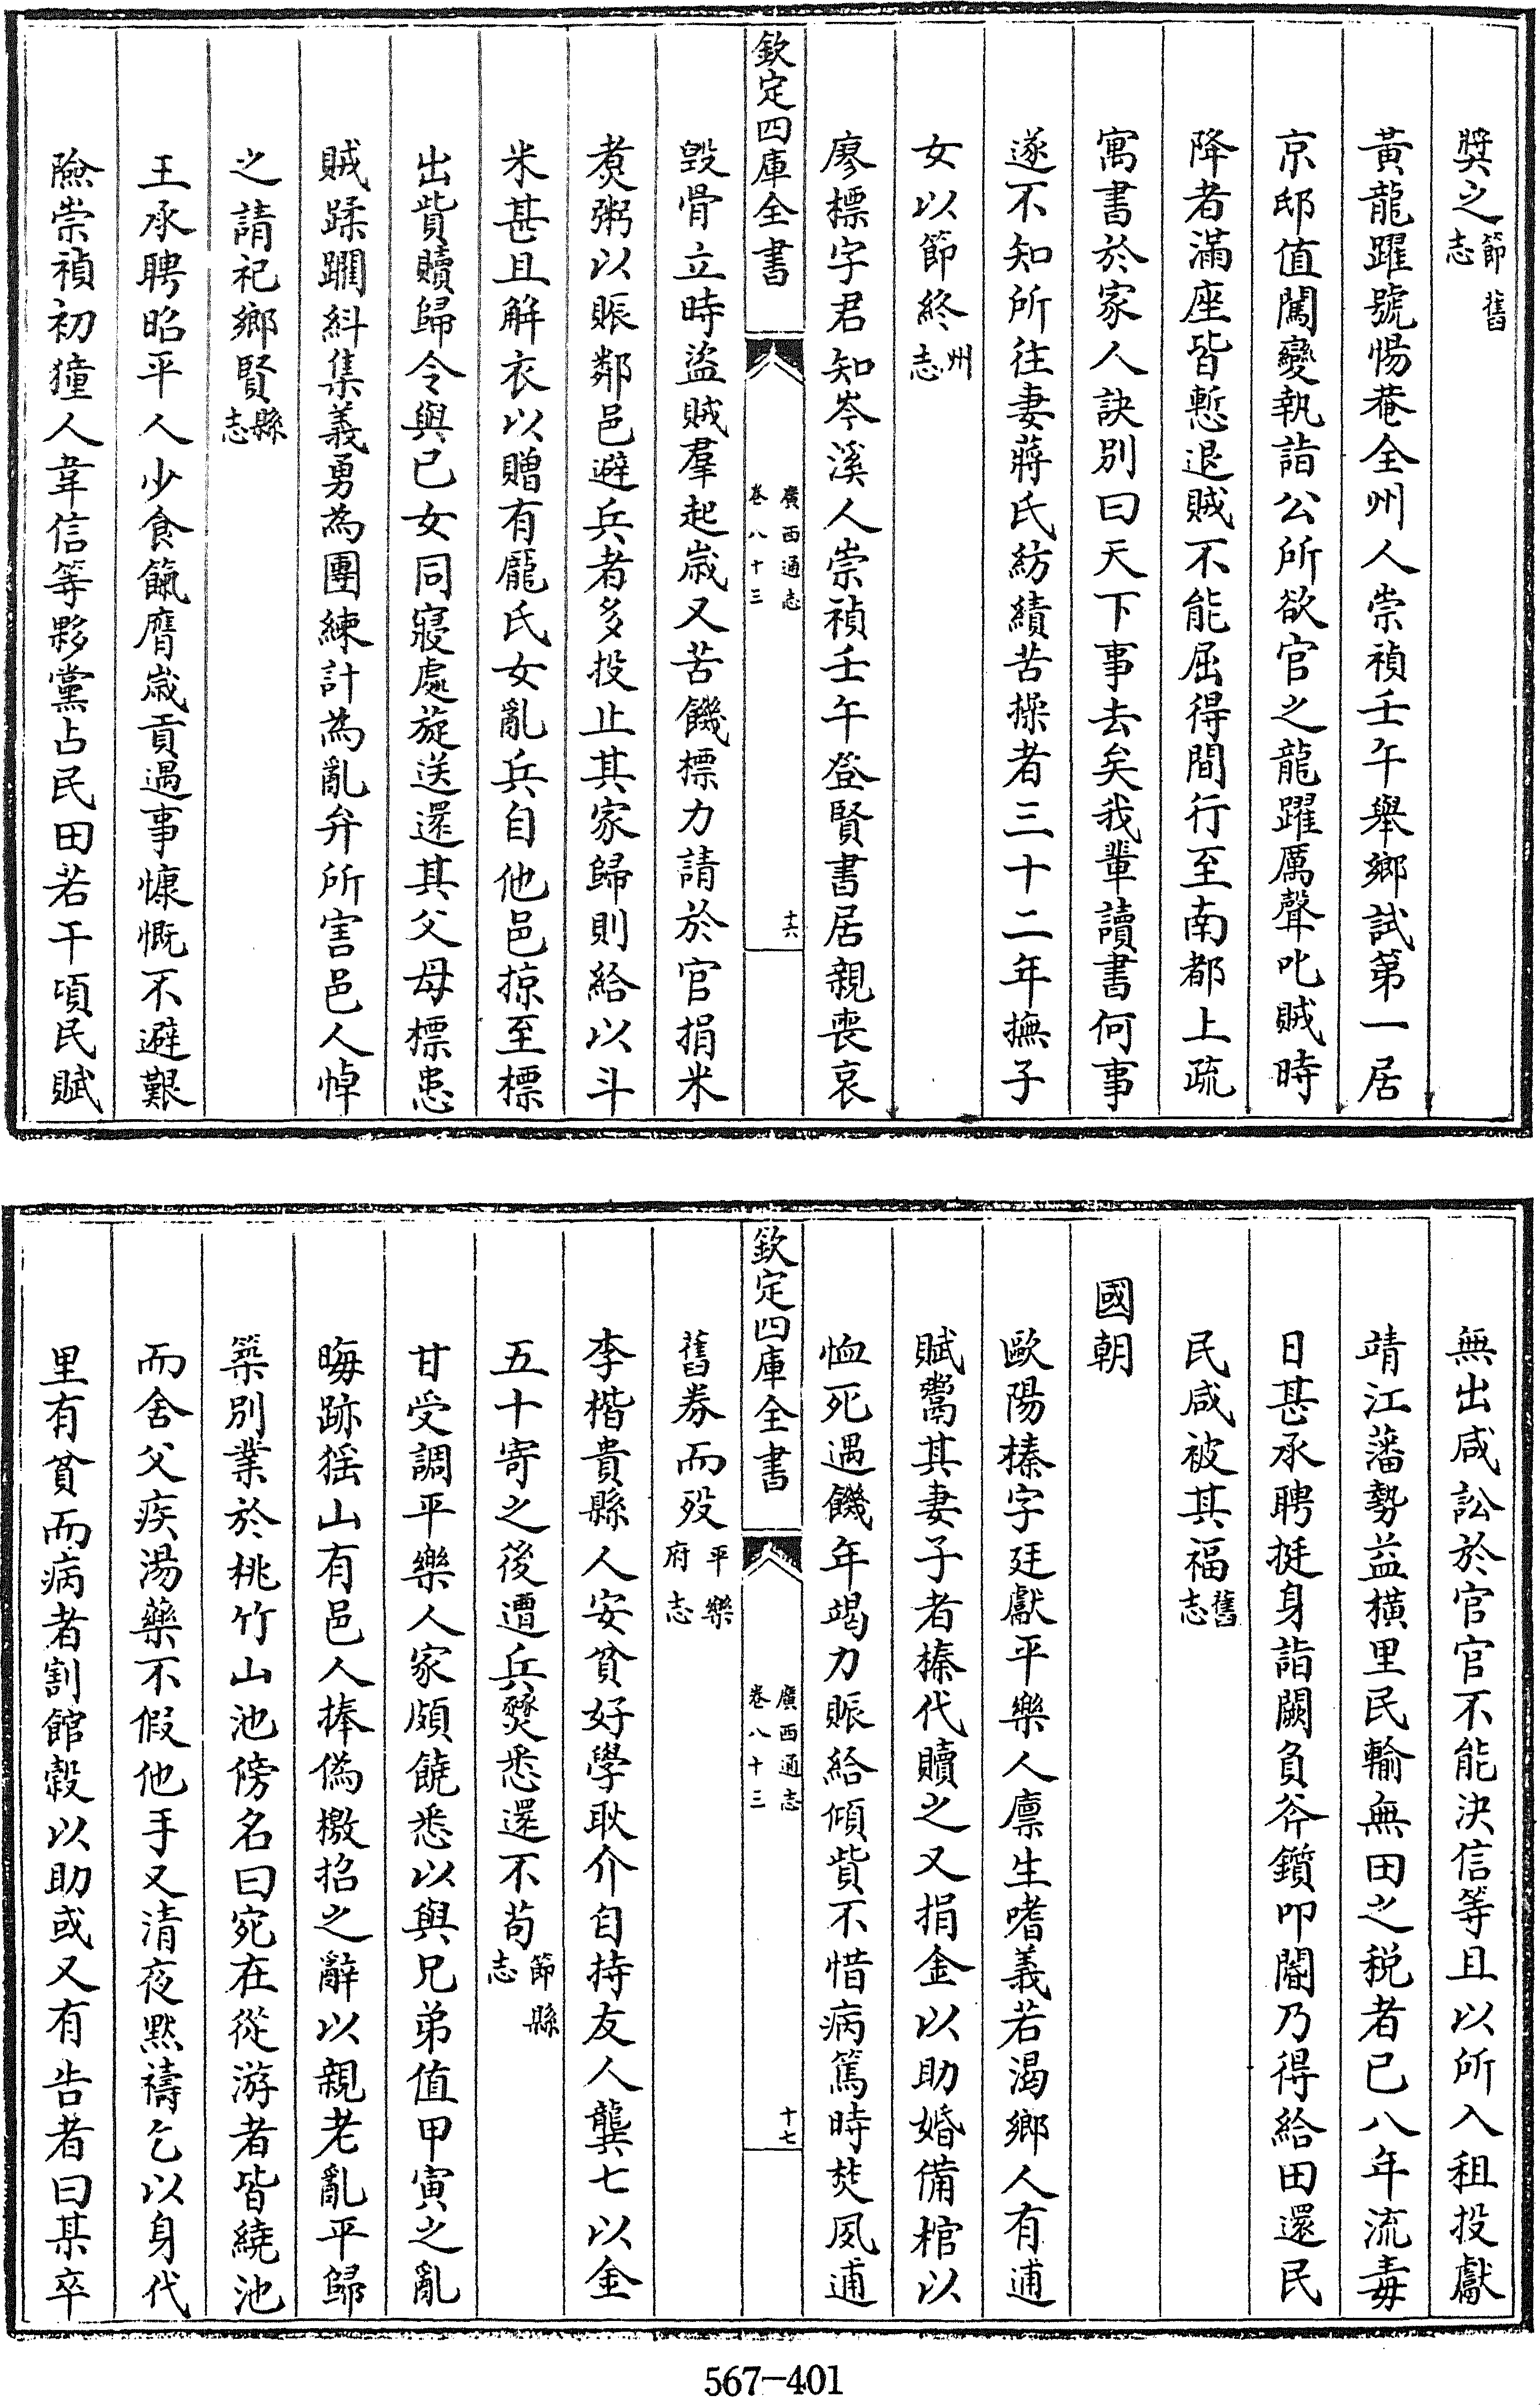 奬之節舊志
黃龍躍號惕菴全州人崇禎壬午舉鄉試第一居
京邸值闖變執詣公所欲官之龍躍厲聲叱賊時
降者滿座皆慙退賊不能屈得間行至南都上疏
寓書於家人訣別曰天下事去矣我輩讀書何事
遂不知所往妻蔣氏紡績苦操者三十二年撫子
女以節終州志
廖標字君知岑溪人崇禎壬午登賢書居親喪哀
欽定四庫全書
廣西通志
卷八十三
十六
毀骨立時盜賊羣起嵗又苦饑標力請於官捐米
煑粥以賑鄰邑避兵者多投止其家歸則給以斗
米甚且解衣以贈有龐氏女亂兵自他邑掠至標
出貲贖歸令與已女同寢處旋送還其父母標患
賊蹂躙糾集義勇為團練計為亂弁所害邑人悼
之請祀鄉賢縣志
王承聘昭平人少食餼膺嵗貢遇事慷慨不避艱
險崇禎初獞人韋信等夥黨占民田若干頃民賦
無出咸訟於官官不能決信等且以所入租投獻
靖江藩勢益橫里民輸無田之税者已八年流毒
日甚承聘挺身詣闕負斧鑕叩閽乃得給田還民
民咸被其福舊志
國朝
歐陽榛字廷獻平樂人廪生嗜義若渴鄉人有逋
賦鬻其妻子者榛代贖之又捐金以助婚備棺以
恤死遇饑年竭力賑給傾貲不惜病篤時焚夙逋
欽定四庫全書
廣西通志
卷八十三
十七
舊券而歿平樂府志
李楷貴縣人安貧好學耿介自持友人龔七以金
五十寄之後遭兵燹悉還不苟節縣志
甘受調平樂人家頗饒悉以與兄弟值甲寅之亂
晦跡猺山有邑人捧偽檄招之辭以親老亂平歸
築別業於桃竹山池傍名曰宛在從游者皆繞池
而舍父疾湯藥不假他手又清夜黙禱乞以身代
里有貧而病者割館榖以助或又有告者曰某卒
567-401